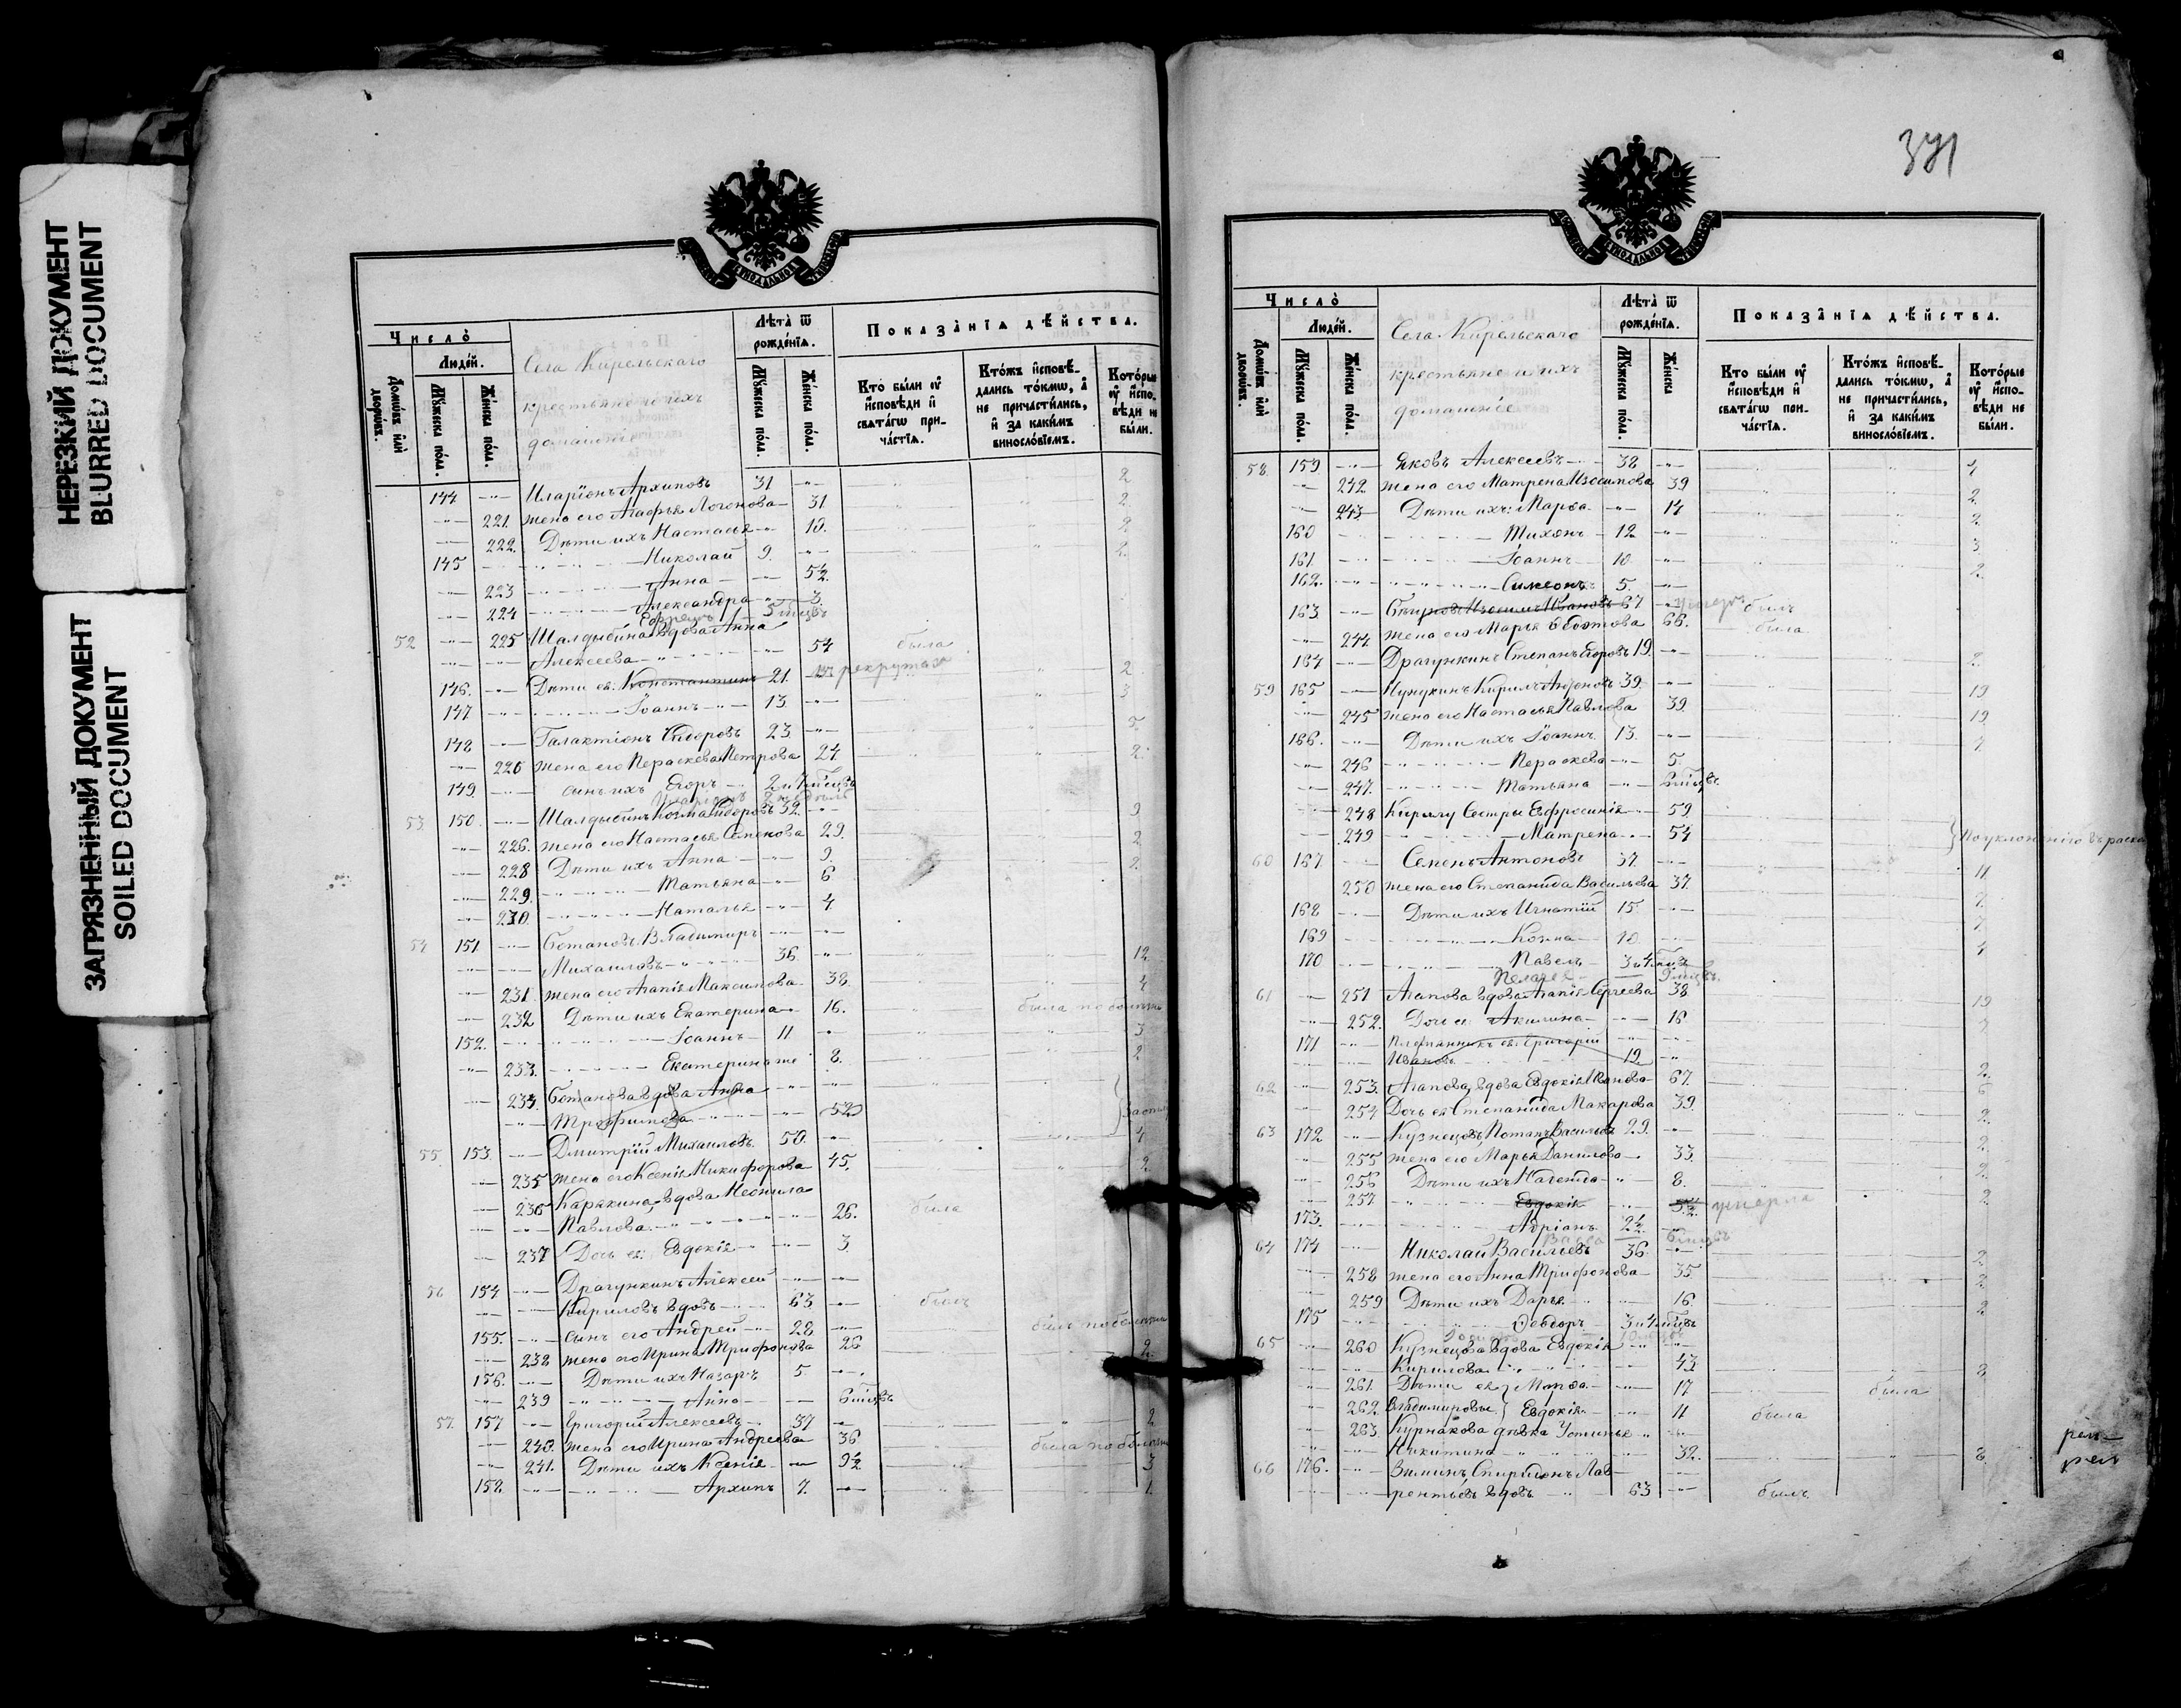 НЕРЕЗКИЙ ДОКУМЕНТ
BLURRED DOCUMENT
ЗАГРЯЗНЕННЫЙ ДОКУМЕНТ
SOILED DOCUMENT
Число̀
Людей.
Домѡвъ или дворѡвъ.
Мꙋжеска пола.
Женска пола.
Села Кирельскаго
крестьяне и ихъ
домашніе
Лѣта̀ ѿ рожденїѧ.
Мꙋжеска пола.
Женска пола.
Показанїѧ дѣйства.
Кто были ᲂу҆ исповѣди и свѧтагѡ причастїѧ.
Ктожъ исповѣдались токмѡ, а не причастились, и за какимъ винословїемъ.
Которые ᲂу҆ исповѣди не были.
144 Иларіонъ Архиповъ 31 2
221. жена его Агафья Логонова 31. 2.
222. Дѣти ихъ Настасья 10. 2
145 Николай 9. 2.
223 Анна 5½
224 Александра 3.
Ефремъ 5 мцвъ
52 225 Шалдыбина вдова Анна
Алексеева 54 была
146. Дѣти ея: Константинъ 21. въ рекрутахъ 2
147 Іоаннъ 13. 3
148 Галактіонъ Ѳедоровъ 23. 5
226 жена его Пераскева Петрова 24 2.
149. сынъ ихъ Егоръ 2 и 7 мцвъ
53. 150. Шалдыбинъ Козма Ѳедоровъ 32. 9
226. жена его Настасья Семенова 29. 2
228 Дѣти ихъ Анна 9. 2.
229. Татьяна 6
230. Наталья 4
54 151 Ботановъ Владимиръ
Михаиловъ 36 12
231. жена его Агапія Максимова 38. 4
232 Дѣти ихъ Екатерина 16. была по болѣзни
152. Іоаннъ 11. 3
233. Екатерина же 8. 2
234. Ботанова вдова Анна
Трофимова 52
55. 153. Дмитрій Михаиловъ 50. 4
235 жена его Ксенія Никифорова 45. 2.
236 Карякина вдова Неонила
Павлова 26. была
237 Дочь ея: Евдокія 3.
56 154 Драгункинъ Алексей
Кириловъ вдовъ 63 былъ
155. сынъ его Андрей 28 былъ по болѣзни
238 жена его Ирина Трифонова 26 2.
156. Дѣти ихъ Назаръ 5
239 Анна 6 мцвъ
57. 157 Григорій Алексеевъ 37 2
240. жена его Ирина Андреева 36 была по болѣзни
241. Дѣти ихъ Ксенія 9½ 3
158. Архипъ 7. 1.
391
Число̀
Людей.
Домѡвъ или дворѡвъ.
Мꙋжеска пола.
Женска пола.
Села Кирельскаго
крестьяне и ихъ
домашніе
Лѣта̀ ѿ рожденїѧ.
Мꙋжеска пола.
Женска
Показанїѧ дѣйства.
Кто были ᲂу҆ исповѣди и свѧтагѡ причастїѧ.
Ктожъ исповѣдались токмѡ, а не причастились, и за какимъ винословїемъ.
Которые ᲂу҆ исповѣди не были.
58. 159. Яковъ Алексеевъ 38 4
242. жена его Матрена Изосимова 39 2.
243. Дѣти ихъ: Марѳа 14 2.
160 Тихонъ 12 3
161. Іоаннъ 10. 2.
162. Симеонъ 5.
163 Изосимъ Ивановъ 67 умеръ былъ
244. жена его Марья 66. была
164 Драгункинъ Степанъ Егоровъ 19. 2.
59 165 Кирилъ Антоновъ 39. 19
245 жена его Настасья Павлова 39. 19.
166. Дѣти ихъ Іоаннъ 13. 7
246 Пераскева 5.
247. Татьяна 6 мцвъ
248 Кирилу Сестры Евфросинія 59.
249 Матрена 54 По уклоненію въ раско
60 167 Семенъ Антоновъ 37. 11
250 жена его Степанида Васильева 37. 7.
168 Дѣти ихъ Игнатій 15. 7
169 Козма 10. 4
170 Павелъ 3 и 4 мцвъ
Пелагея 9 мцвъ.
61 251 Агапова вдова Агапія Сергеева 38 19
252. Дочь ея Акилина 16 7
171 Племянникъ ея: Григорій
Ивановъ 19. 2.
62 253. Агапова вдова Евдокія Иванова 67. 6
254 Дочь ея Степанида Макарова 39. 2.
63 172 Кузнецовъ Потапъ Васильевъ 29. 2.
255 жена его Марья Данилова 33. 2.
256 Дѣти ихъ 8. 2
257 Евдокія 3½ умерла
173. Адріанъ 2½
6 мцвъ
64 174 Николай Васильевъ 36. 2
258 жена его Анна Трифонова 35 2.
259 Дѣти ихъ Дарья 16. 2
175 Ѳеодоръ 3 и 4 мцвъ
65 260 Кузнецова вдова Евдокія
Кирилова 43 8
261. Дѣти ея Марѳа 17 была
262. Владимировы Евдокія 11 была
263 Курнакова дѣвка Устинья
Никитина 32. 8.
66 176. Зиминъ Спиридонъ Лав-
рентьевъ вдовъ 63 былъ